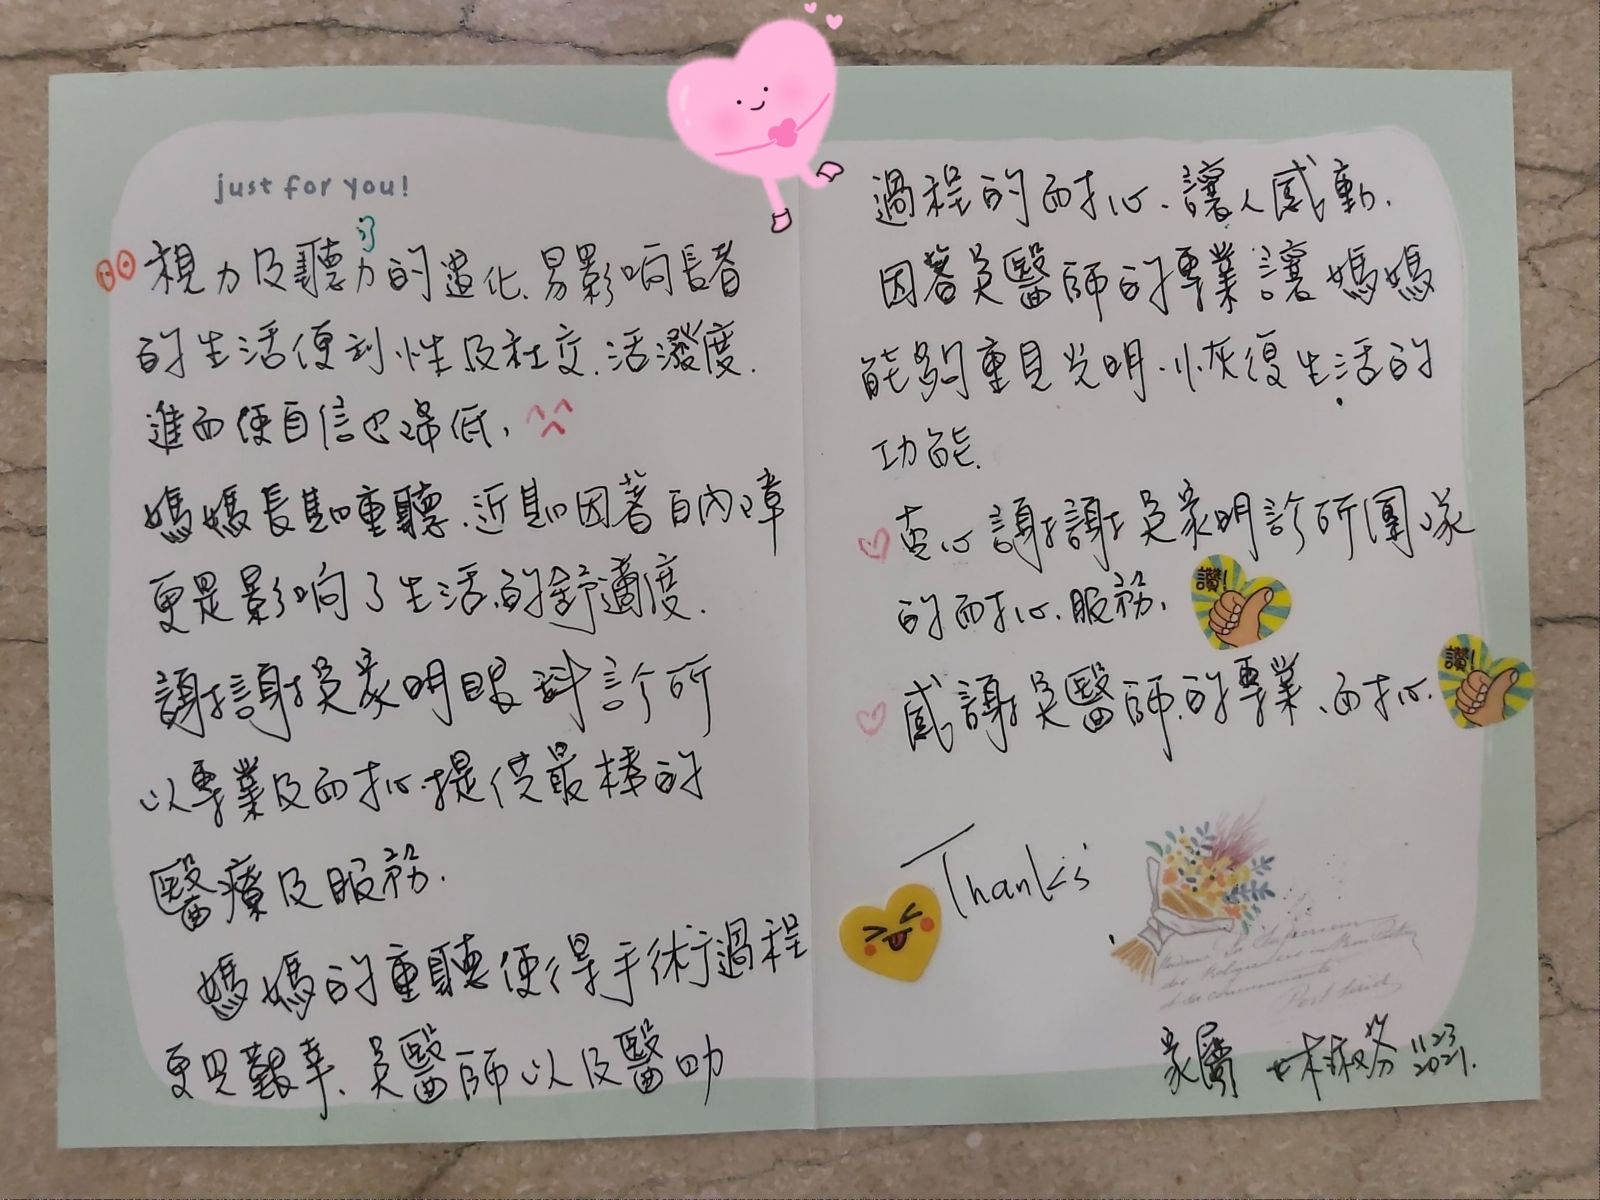 just for you!
視力及聽力的退化、易影响長者
的生活便利性及社交、活潑度.
進而使自信也降低,
媽媽長期重聽、近期因著白內障
更是影响了生活的舒適度.
謝謝吳家明眼科診所
以專業及耐心提供最棒的
醫療及服務.
媽媽的重聽使得手術過程
更見艱辛、吳醫師以及醫助
過程的耐心、讓人感動.
因著吳醫師的專業讓媽媽
能夠重見光明、恢復生活的
功能.
衷心謝謝吳家明診所團隊
的耐心服務,
讚!
感謝吳醫師的專業、耐心.
讚!
Thanks
家屬
11.23
2021.